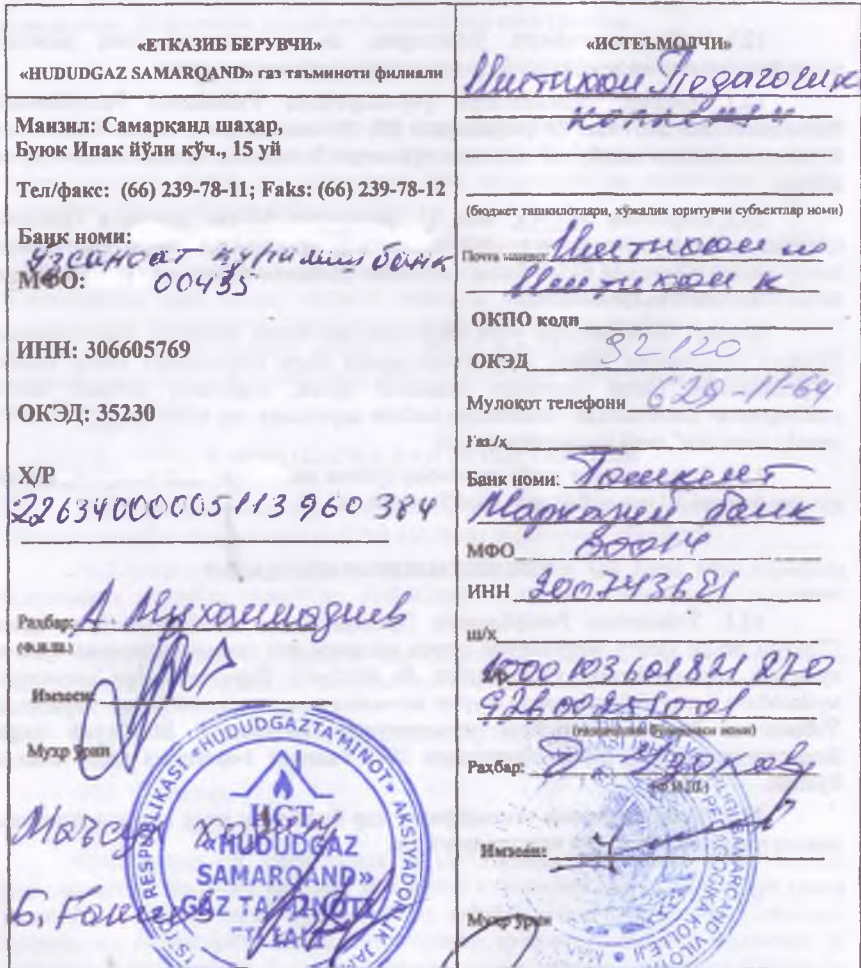 «ЕТКАЗИБ БЕРУВЧИ»
«HUDUDGAZ SAMARQAND» газ таъминоти филиали
Манзил: Самарқанд шаҳар,
Буюк Ипак йўли кўч., 15 уй
Тел/факс: (66) 239-78-11; Faks: (66) 239-78-12
Банк номи:
Ўзсаноат қурилиш банк
МФО: 00435
ИНН: 306605769
ОКЭД: 35230
Х/Р
22634000005113960384
Раҳбар: А. Мухаммадиев
(Ф.И.Ш.)
Имзоси:
Муҳр ўрни
RESPUBLIKASI «HUDUDGAZTA'MINOT» AKSIYADORLIK
«HUDUDGAZ
SAMARQAND»
GAZ TA'MINOTI
FILIALI
«ИСТЕЪМОЛЧИ»
Иштихон Педагогика
коллежи
(бюджет ташкилотлари, хўжалик юритувчи субъектлар номи)
Почта манзил: Иштихон
Иштихон к
ОКПО коди
ОКЭД 92120
Мулоқот телефони 629-11-64
Ғаз./х
Банк номи: Тошкент
Марказий банк
МФО 00014
ИНН 200743621
ш/х
(Ф.И.Ш.)
Раҳбар:
Имзоси:
Муҳр ўрни
SAMARQAND
PEDAGOGIKA KOLLEJI